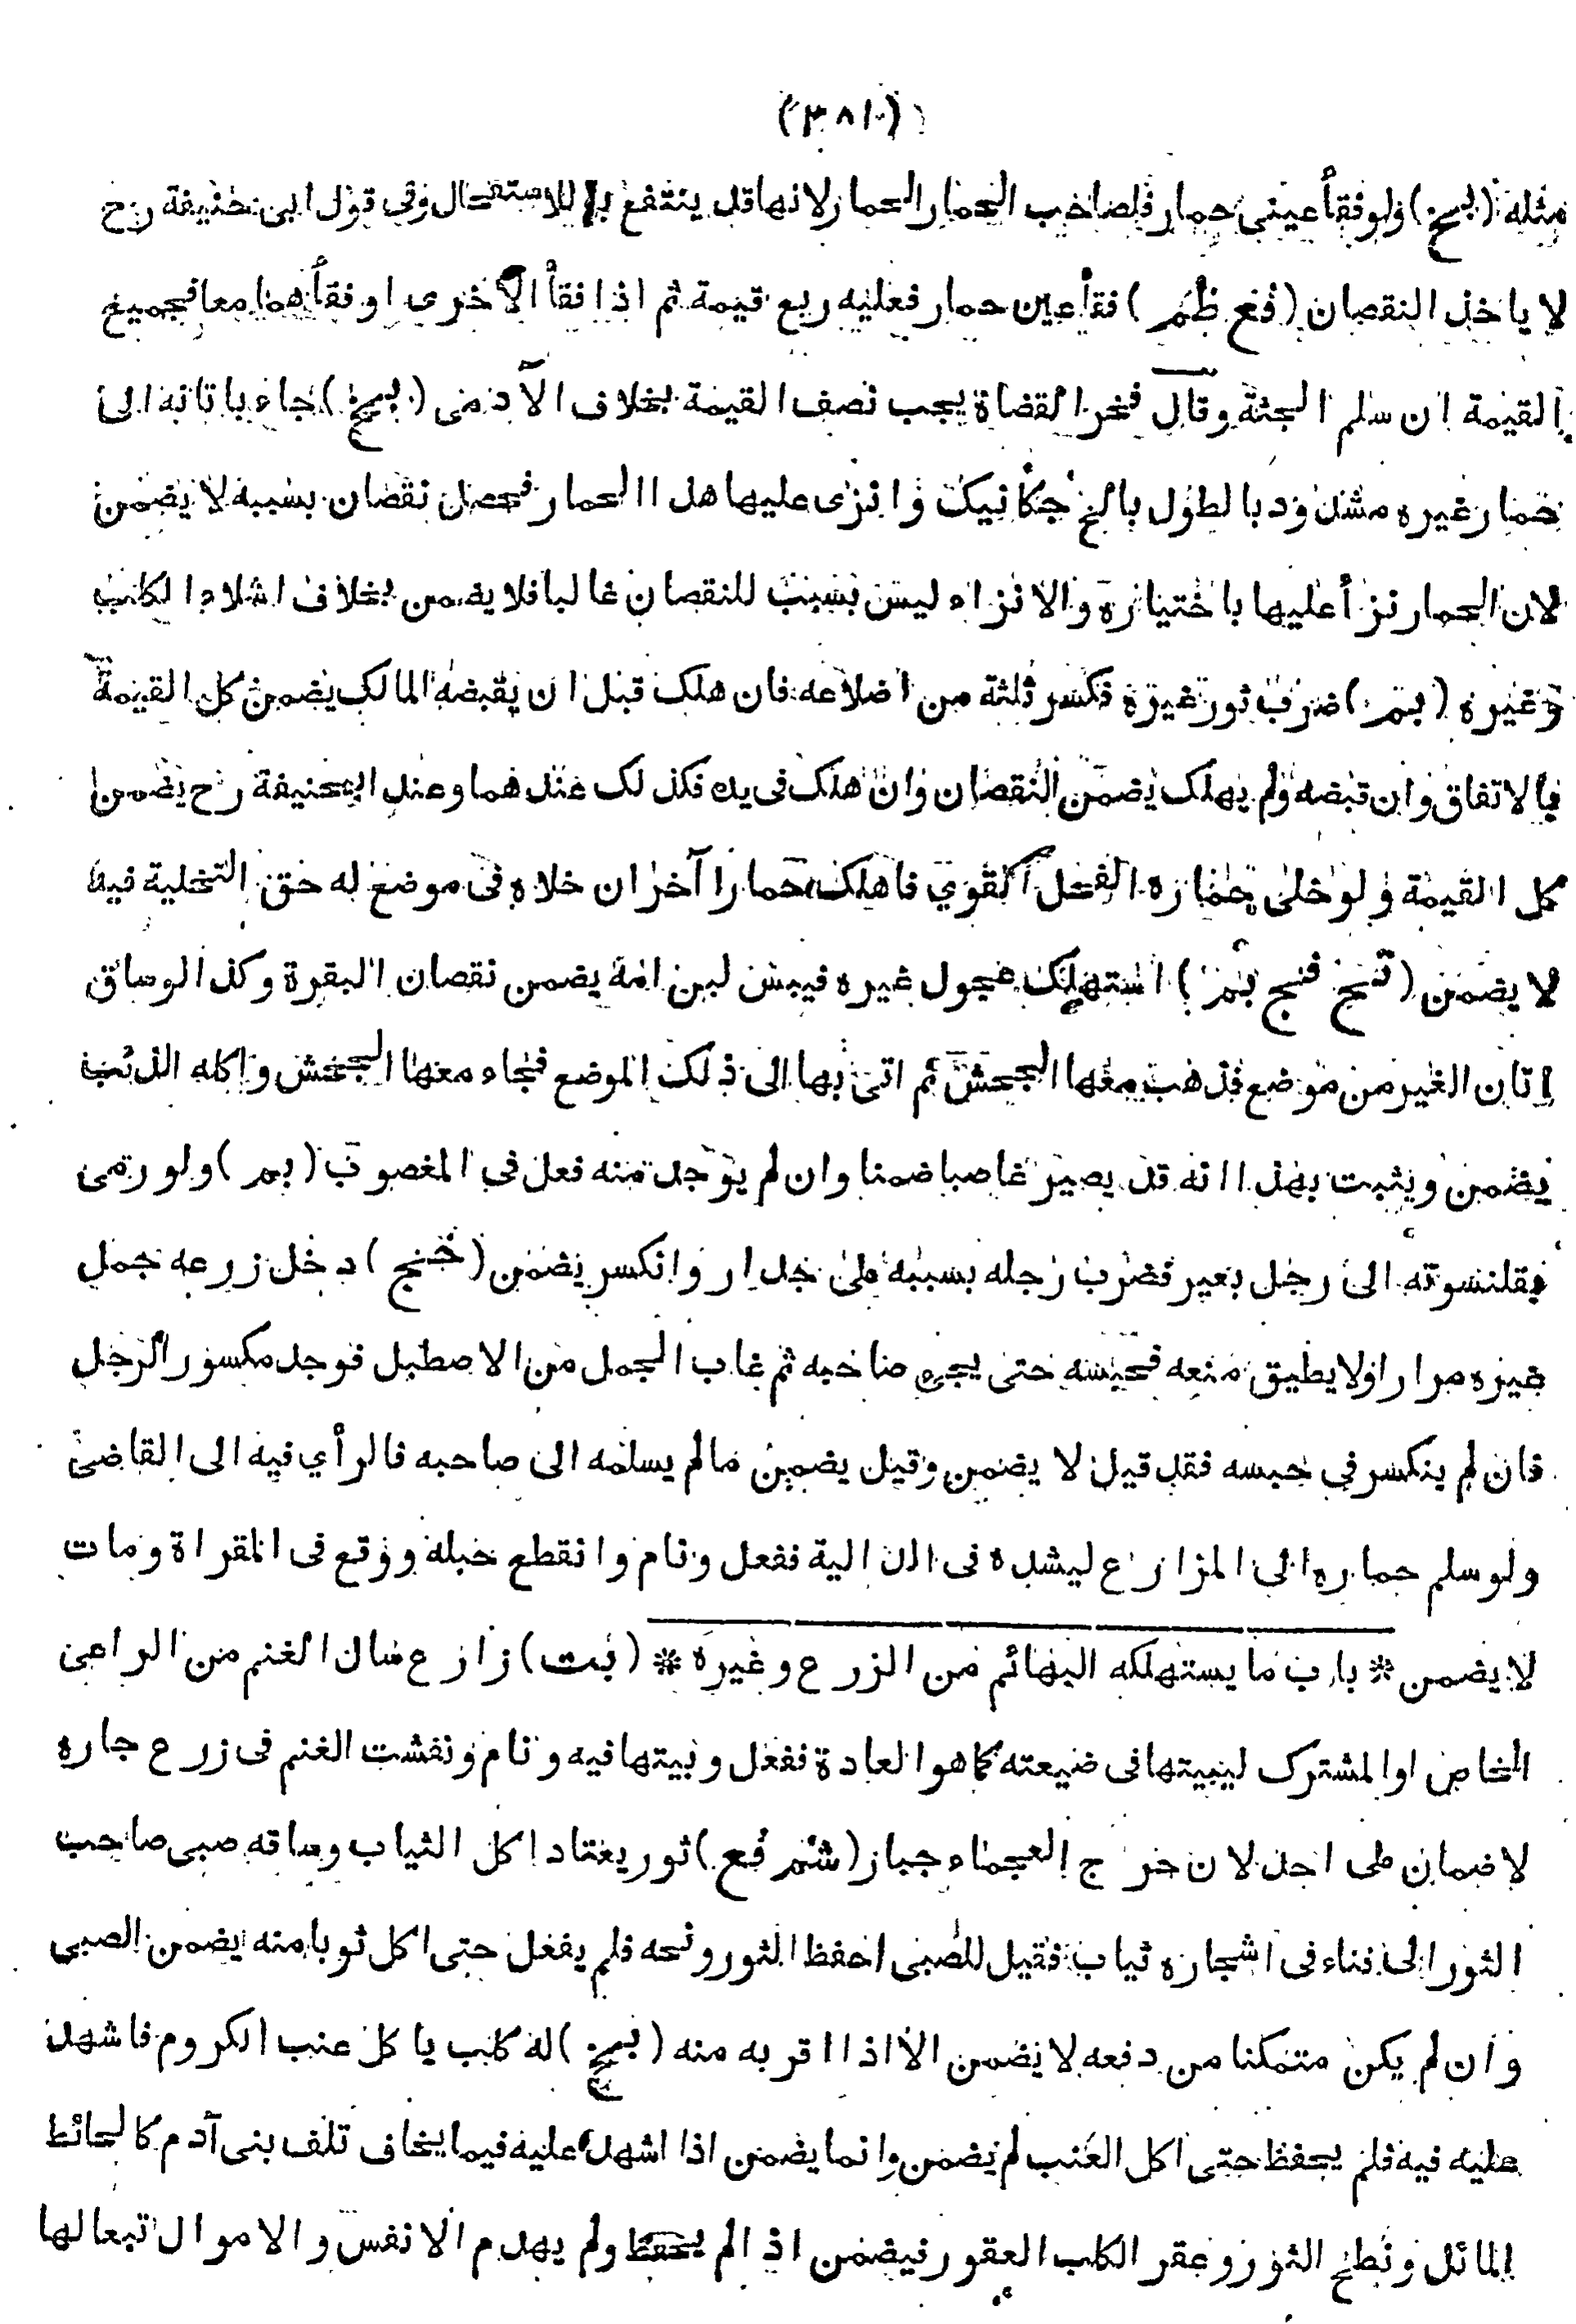 (٣٨٠)
مثله (بمخ) ولو فقأ عيني حمار فلصاحب الحمار الحمار لانها قد ينتفع به للاستفحال وفى قول ابى حنيفة رح
لا ياخذ النقصان (فع ظم) فقأ عين حمار فعليه ربع قيمة ثم اذا فقأ الاخرى او فقأهما معا فجميع
القيمة ان سلم الجثة وقال فخر القضاة يجب نصف القيمة بخلاف الآدمى (بمخ) جاء باتانه الى
حمار غيره مشدود بالطول وانزى عليها هذا الحمار فحصل نقصان بسببه لا يضمن
لان الحمار نزأ عليها باختياره والانزاء ليس بسبب للنقصان غالبا فلا يضمن بخلاف اشلاء الكلب
وغيره (بم) ضرب ثور غيره فكسر ثلثة من اضلاعه فان هلك قبل ان يقبضه المالك يضمن كل القيمة
بالاتفاق وان قبضه ولم يهلك يضمن النقصان وان هلك فى يده فكذلك عندهما وعند ابيحنيفة رح يضمن
كل القيمة ولو خلى حماره الفحل القوي فاهلك حمارا آخر ان خلاه فى موضع له حق التخلية فيه
لا يضمن (تمخ فمج بم) استهلك عجول غيره فيبس لبن امه يضمن نقصان البقرة وكذا لوساق
اتان الغير من موضع فذهب معها الجحش ثم اتى بها الى ذلك الموضع فجاء معها الجحش واكله الذئب
يضمن ويثبت بهذا انه قد يصير غاصبا ضمنا وان لم يوجد منه فعل فى المغصوب (بم) ولو رمى
بقلنسوته الى رجل بعير فضرب رجله بسببه على جدار وانكسر يضمن (خج) دخل زرعه جمل
غيره مرارا ولا يطيق منعه فحبسه حتى يجىء صاحبه ثم غاب الجمل من الاصطبل فوجد مكسور الرجل
فان لم ينكسر فى حبسه فقد قيل لا يضمن وقيل يضمن مالم يسلمه الى صاحبه فالرأي فيه الى القاضى
ولو سلم حماره الى المزارع ليشده فى الدالية ففعل ونام وانقطع حبله ووقع فى المقراة ومات
لا يضمن * باب ما يستهلكه البهائم من الزرع وغيره * (بت) زارع سال الغنم من الراعى
الخاص او المشترك ليبيتها فى ضيعته كما هو العادة ففعل وبيتها فيه ونام ونفشت الغنم فى زرع جاره
لا ضمان على احد لان جرح العجماء جبار (شم فع) ثور يعتاد اكل الثياب وساقه صبى صاحب
الثور الى فناء فى اشجاره ثياب فقيل للصبى احفظ الثور ونحه فلم يفعل حتى اكل ثوبا منه يضمن الصبى
وان لم يكن متمكنا من دفعه لا يضمن الا اذا اقر به منه (بمخ) له كلب ياكل عنب الكروم فاشهد
عليه فيه فلم يحفظ حتى اكل العنب لم يضمن وانما يضمن اذا اشهد عليه فيما يخاف تلف بنى آدم كالحائط
المائل ونطح الثور وعقر الكلب العقور فيضمن اذا لم يحفظ ولم يهدم الانفس والاموال تبعا لها